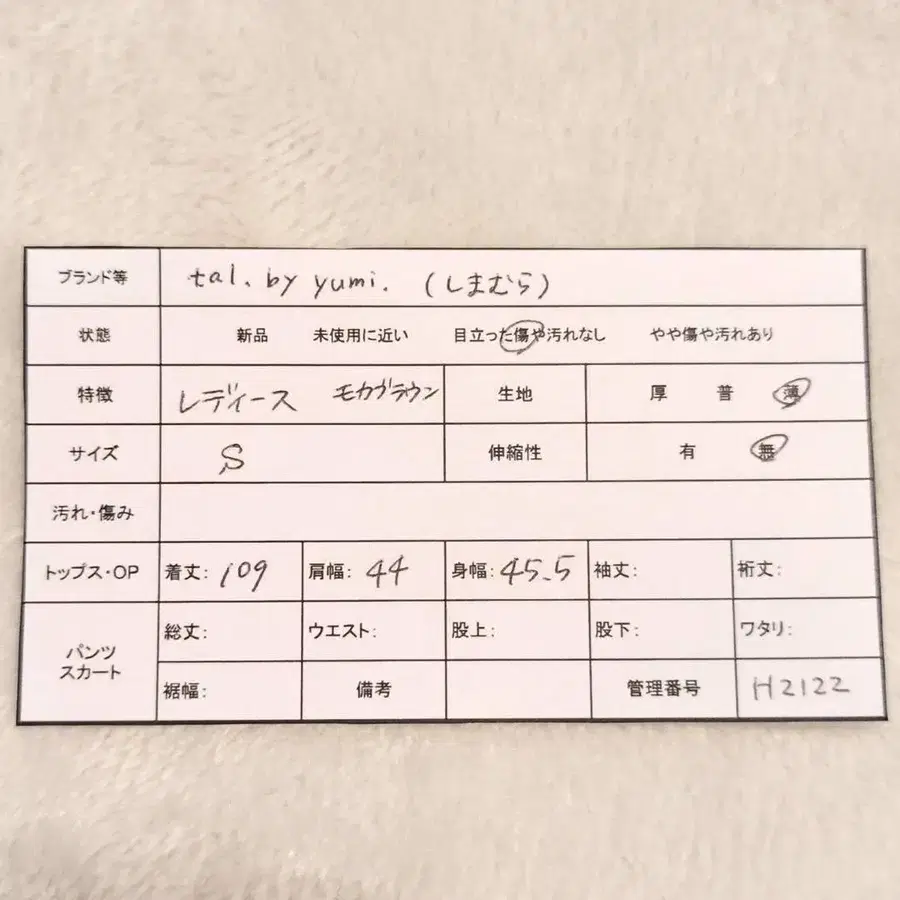 ブランド等 tal. by yumi. (しまむら)
状態 新品 未使用に近い 目立った傷や汚れなし やや傷や汚れあり
特徴 レディース モカブラウン 生地 厚 普 薄
サイズ S 伸縮性 有 無
汚れ・傷み
トップス・OP 着丈: 109 肩幅: 44 身幅: 45.5 袖丈: 裄丈:
パンツ スカート
総丈: ウエスト: 股上: 股下: ワタリ:
裾幅: 備考 管理番号 H2122